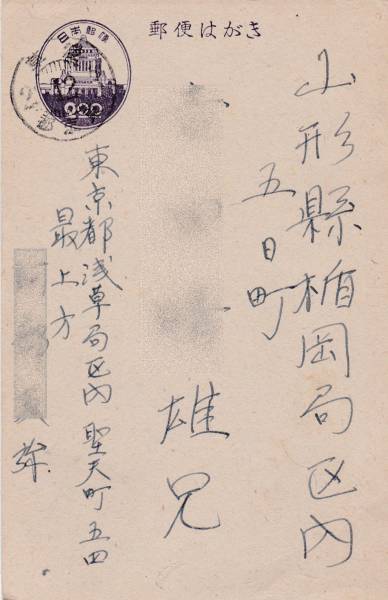 郵便はがき
日本郵便
山形縣楯岡局区内
五日町
雄兄
東京都浅草局区内 聖天町五四
最上方